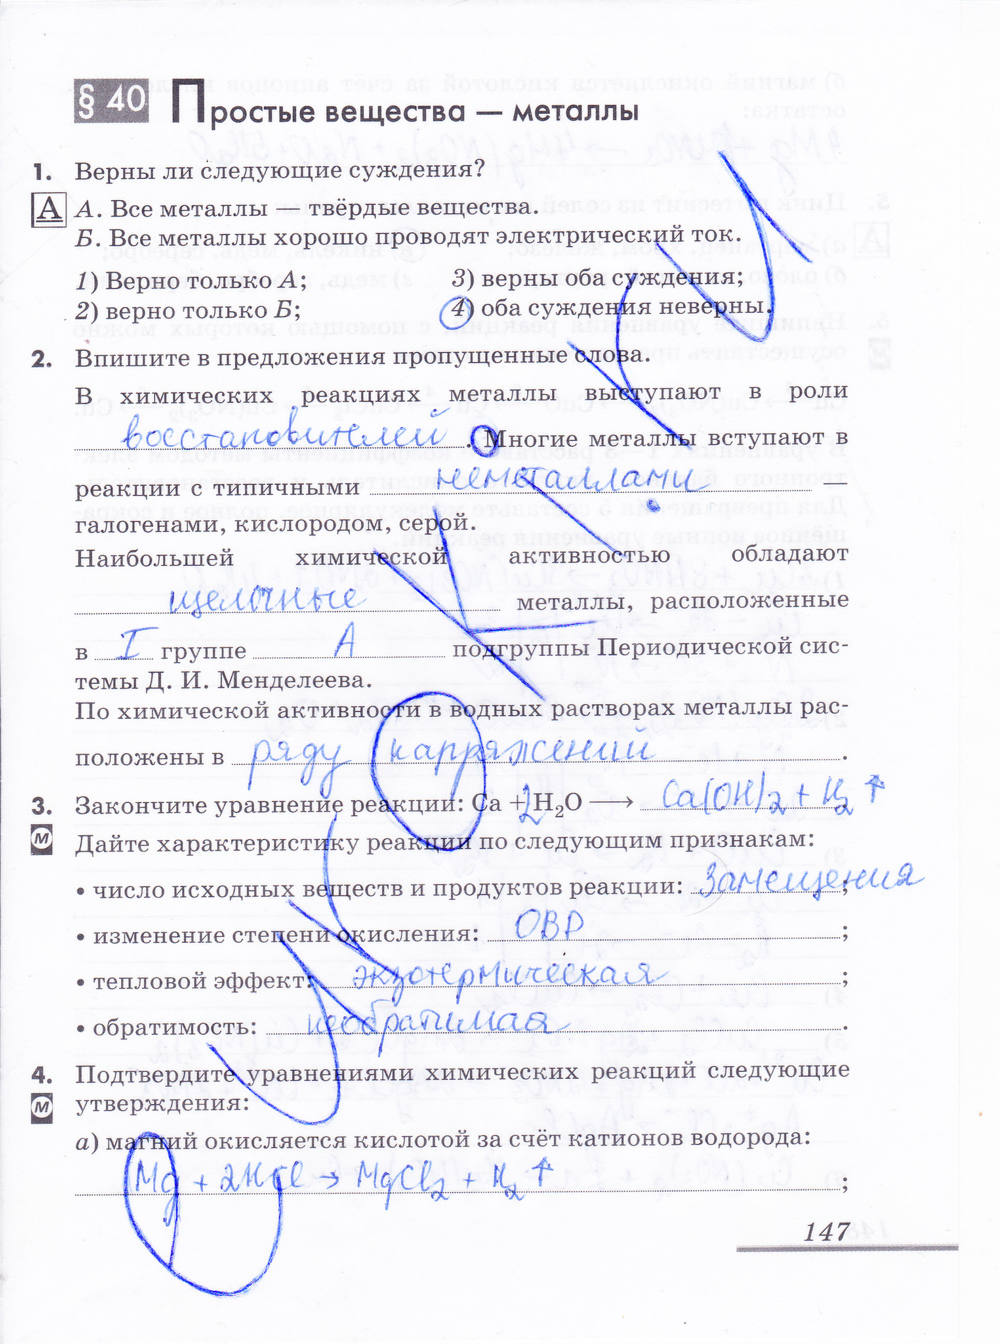 § 40 Простые вещества — металлы
1. Верны ли следующие суждения?
А А. Все металлы — твёрдые вещества.
Б. Все металлы хорошо проводят электрический ток.
1) Верно только А; 3) верны оба суждения;
2) верно только Б; 4) оба суждения неверны.
2. Впишите в предложения пропущенные слова.
В химических реакциях металлы выступают в роли
восстановителей. Многие металлы вступают в
реакции с типичными неметаллами
галогенами, кислородом, серой.
Наибольшей химической активностью обладают
щелочные металлы, расположенные
в I группе А подгруппы Периодической сис-
темы Д. И. Менделеева.
По химической активности в водных растворах металлы рас-
положены в ряду напряжений.
3. Закончите уравнение реакции: Ca + 2H₂O ⟶ Ca(OH)₂ + H₂↑
М Дайте характеристику реакции по следующим признакам:
• число исходных веществ и продуктов реакции: Замещения;
• изменение степени окисления: ОВР;
• тепловой эффект: экзотермическая;
• обратимость: необратимая.
4. Подтвердите уравнениями химических реакций следующие
М утверждения:
а) магний окисляется кислотой за счёт катионов водорода:
Mg + 2HCl → MgCl₂ + H₂↑;
147